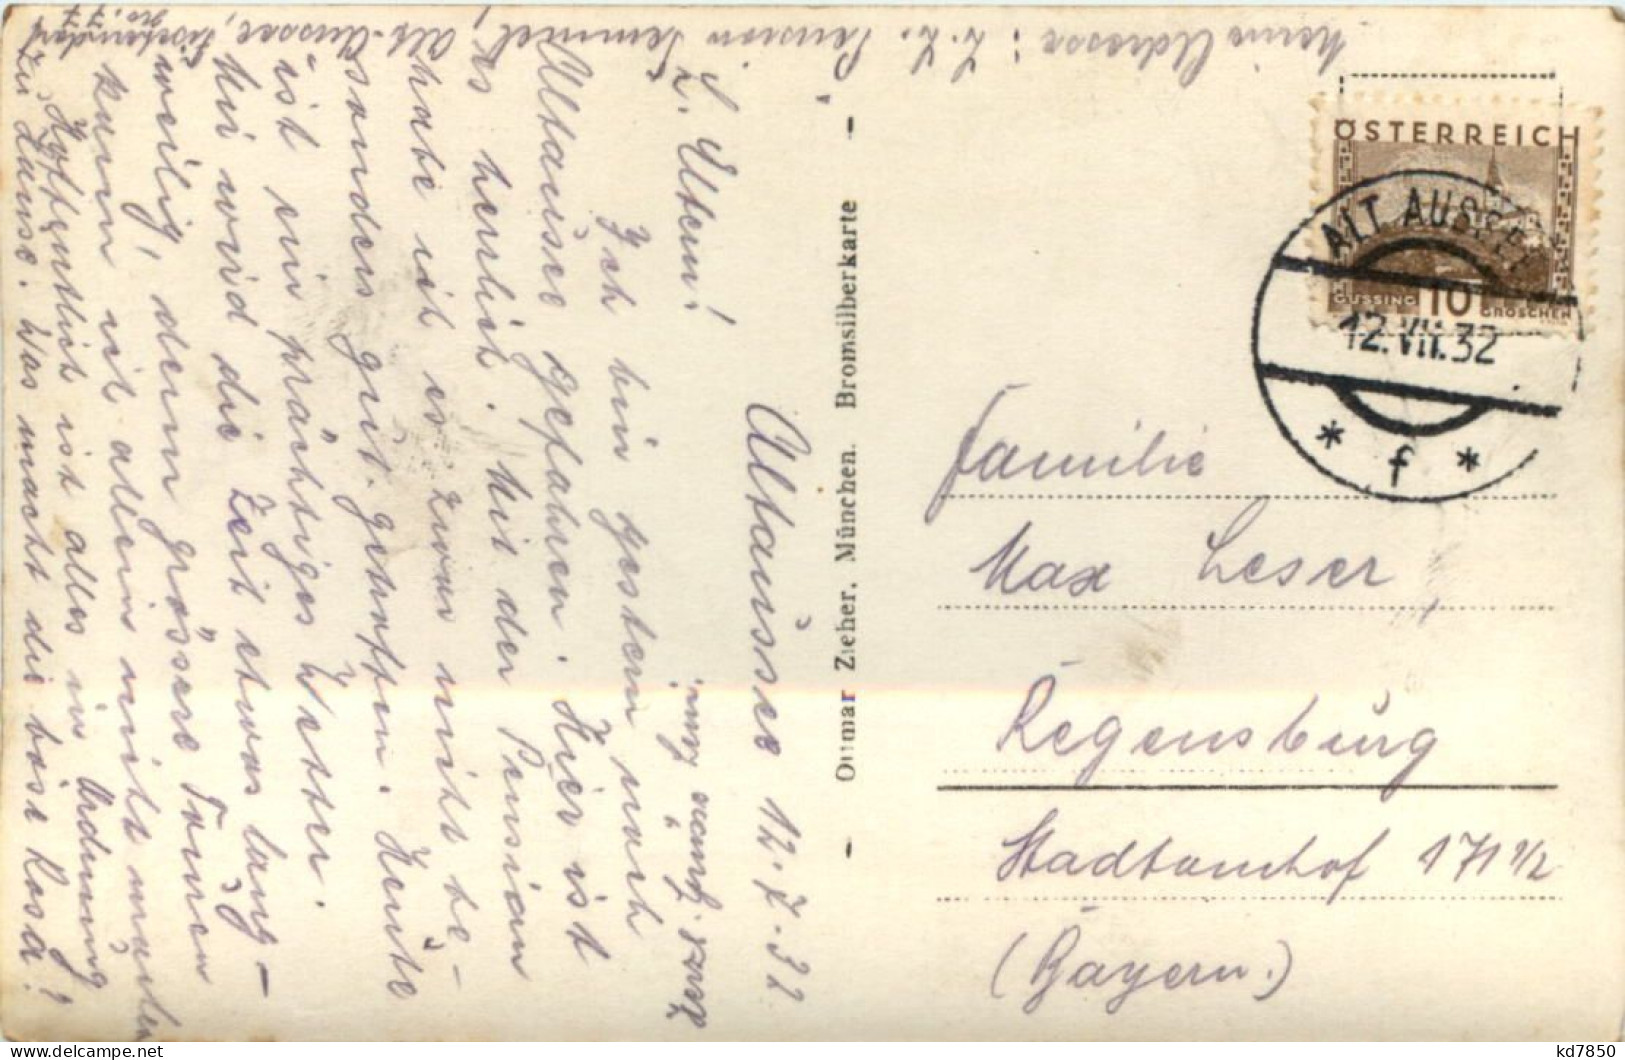 Meine Adresse: z. Z. Pension Semmel, Alt-Aussee, Fischerndorf
No. 77
Altaussee 12.7.32
L. Eltern!
Ich bin gestern nach
Altaussee gefahren. Hier ist
es herrlich. Mit der Pension
habe ich es zwar nicht be-
sonders gut getroffen. Heute
ist ein prächtiges Wetter.
Mir wird die Zeit etwas lang-
weilig, denn grössere Touren
kann ich allein nicht machen
Hoffentlich ist alles in Ordnung
zu Hause. Was macht die böse Rosa?
Herzl. Gruss euer
Ottmar Zieher, München. Bromsilberkarte
ÖSTERREICH
GÜSSING 10 GROSCHEN
ALT AUSSEE
12.VII.32
* f *
Familie
Max Leser
Regensburg
Stadtamhof 171 1/2
(Bayern.)
kd7850